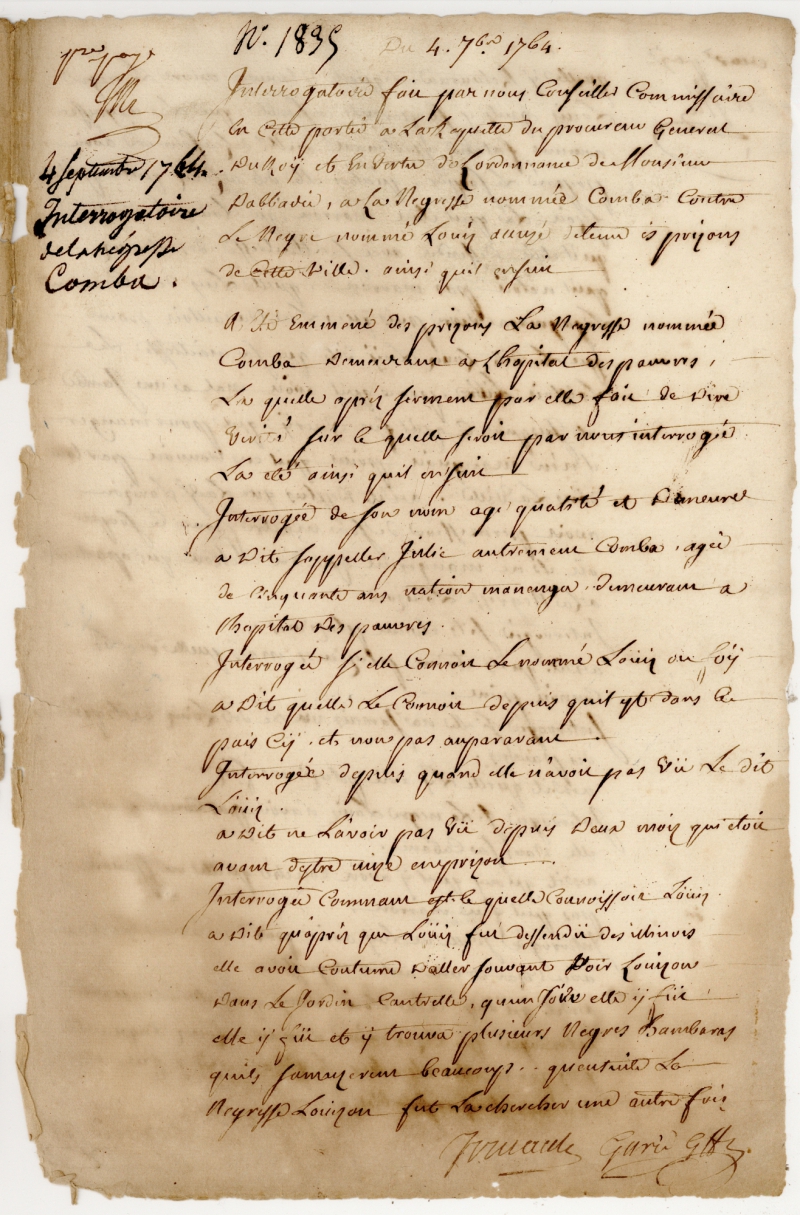 N.° 1835 Du 4. 7bre 1764.
pre page
4 Septembre 1764.
Interrogatoire
de la négresse
Comba.
Interrogatoire fait par nous Conseiller Commissaire
en Cette partie a La Requette du procureur General
Du Roÿ et En Vertu de Lordonnance de Monsieur
Dabbadie, a La Negresse nommée Comba Contre
Le Negre nommé Louis detenu és prizons
de Cette Ville. ainsi quil ensuit
A Eté Emmené des prizons La Negresse nommée
Comba Demeurant a Lhopital des pauvres,
La quelle aprés serment par elle fait de Dire
Verité sur le quelle seroit par nous interrogée
La été ainsi quil ensuit
Interrogée de son nom age qualité et Demeure
a Dit sappeller Julie autrement Comba, agée
de Cinquante ans nation manenga demeurant a
lhopital Des pauvres.
Interrogée si elle Connoit Le nommé Loüis ou foÿ
a Dit quelle Le Connoit depuis quil yt dans Ce
pais Cÿ. et non pas auparavant.
Interrogée depuis quand elle n'avoit pas Vü Le dit
Loüis.
a Dit ne L'avoir pas Vü depuis Deux mois qui etoit
avant d'estre mise en prizon.
Interrogée Commant est-le quelle Connoissoit Loüis.
a Dit quaprés que Loüis fut dessendü des illinois
elle avoit Coutume D'aller souvant Voir Louizon
Dans Le Jardin Cantrelle, quun Jour elle ÿ fut
elle ÿ füt et ÿ trouva plusieurs Negres Bambaras
quils samuzerent beaucoup. quensuite La
Negresse Louizon fut La chercher une autre fois
Garic Gffr